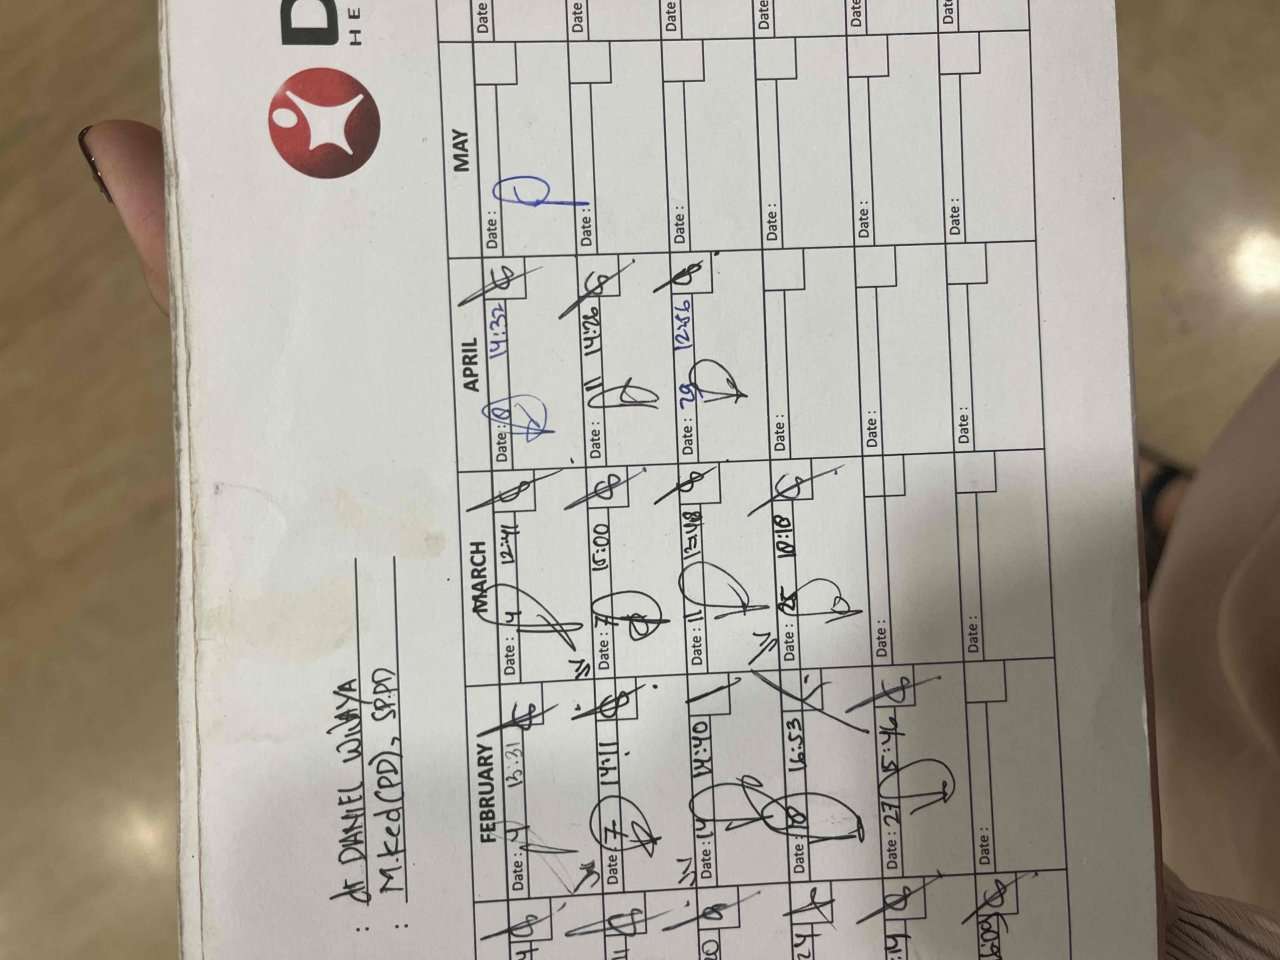 D
HE
: dr. DANIEL WIJAYA
: M.Ked(PD), SP.PD
FEBRUARY MARCH APRIL MAY
Date: 4 13:31 Date: 4 12:41 Date: 8 14:32 Date: Date
Date: 7 14:11 Date: 7 15:00 Date: 11 14:26 Date: Date
20 Date: 14 14:40 Date: 11 13:48 Date: 29 12:56 Date: Date
24 Date: 18 16:53 Date: 25 18:18 Date: Date: Date
:14 Date: 27 15:46 Date: Date: Date: Date
6:09 Date: Date: Date: Date: Date